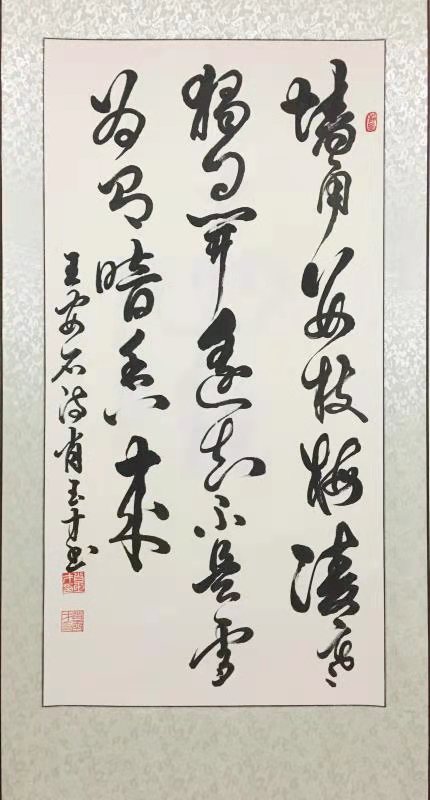 墙角数枝梅凌寒
独自开遥知不是雪
为有暗香来
王安石诗肖玉才书